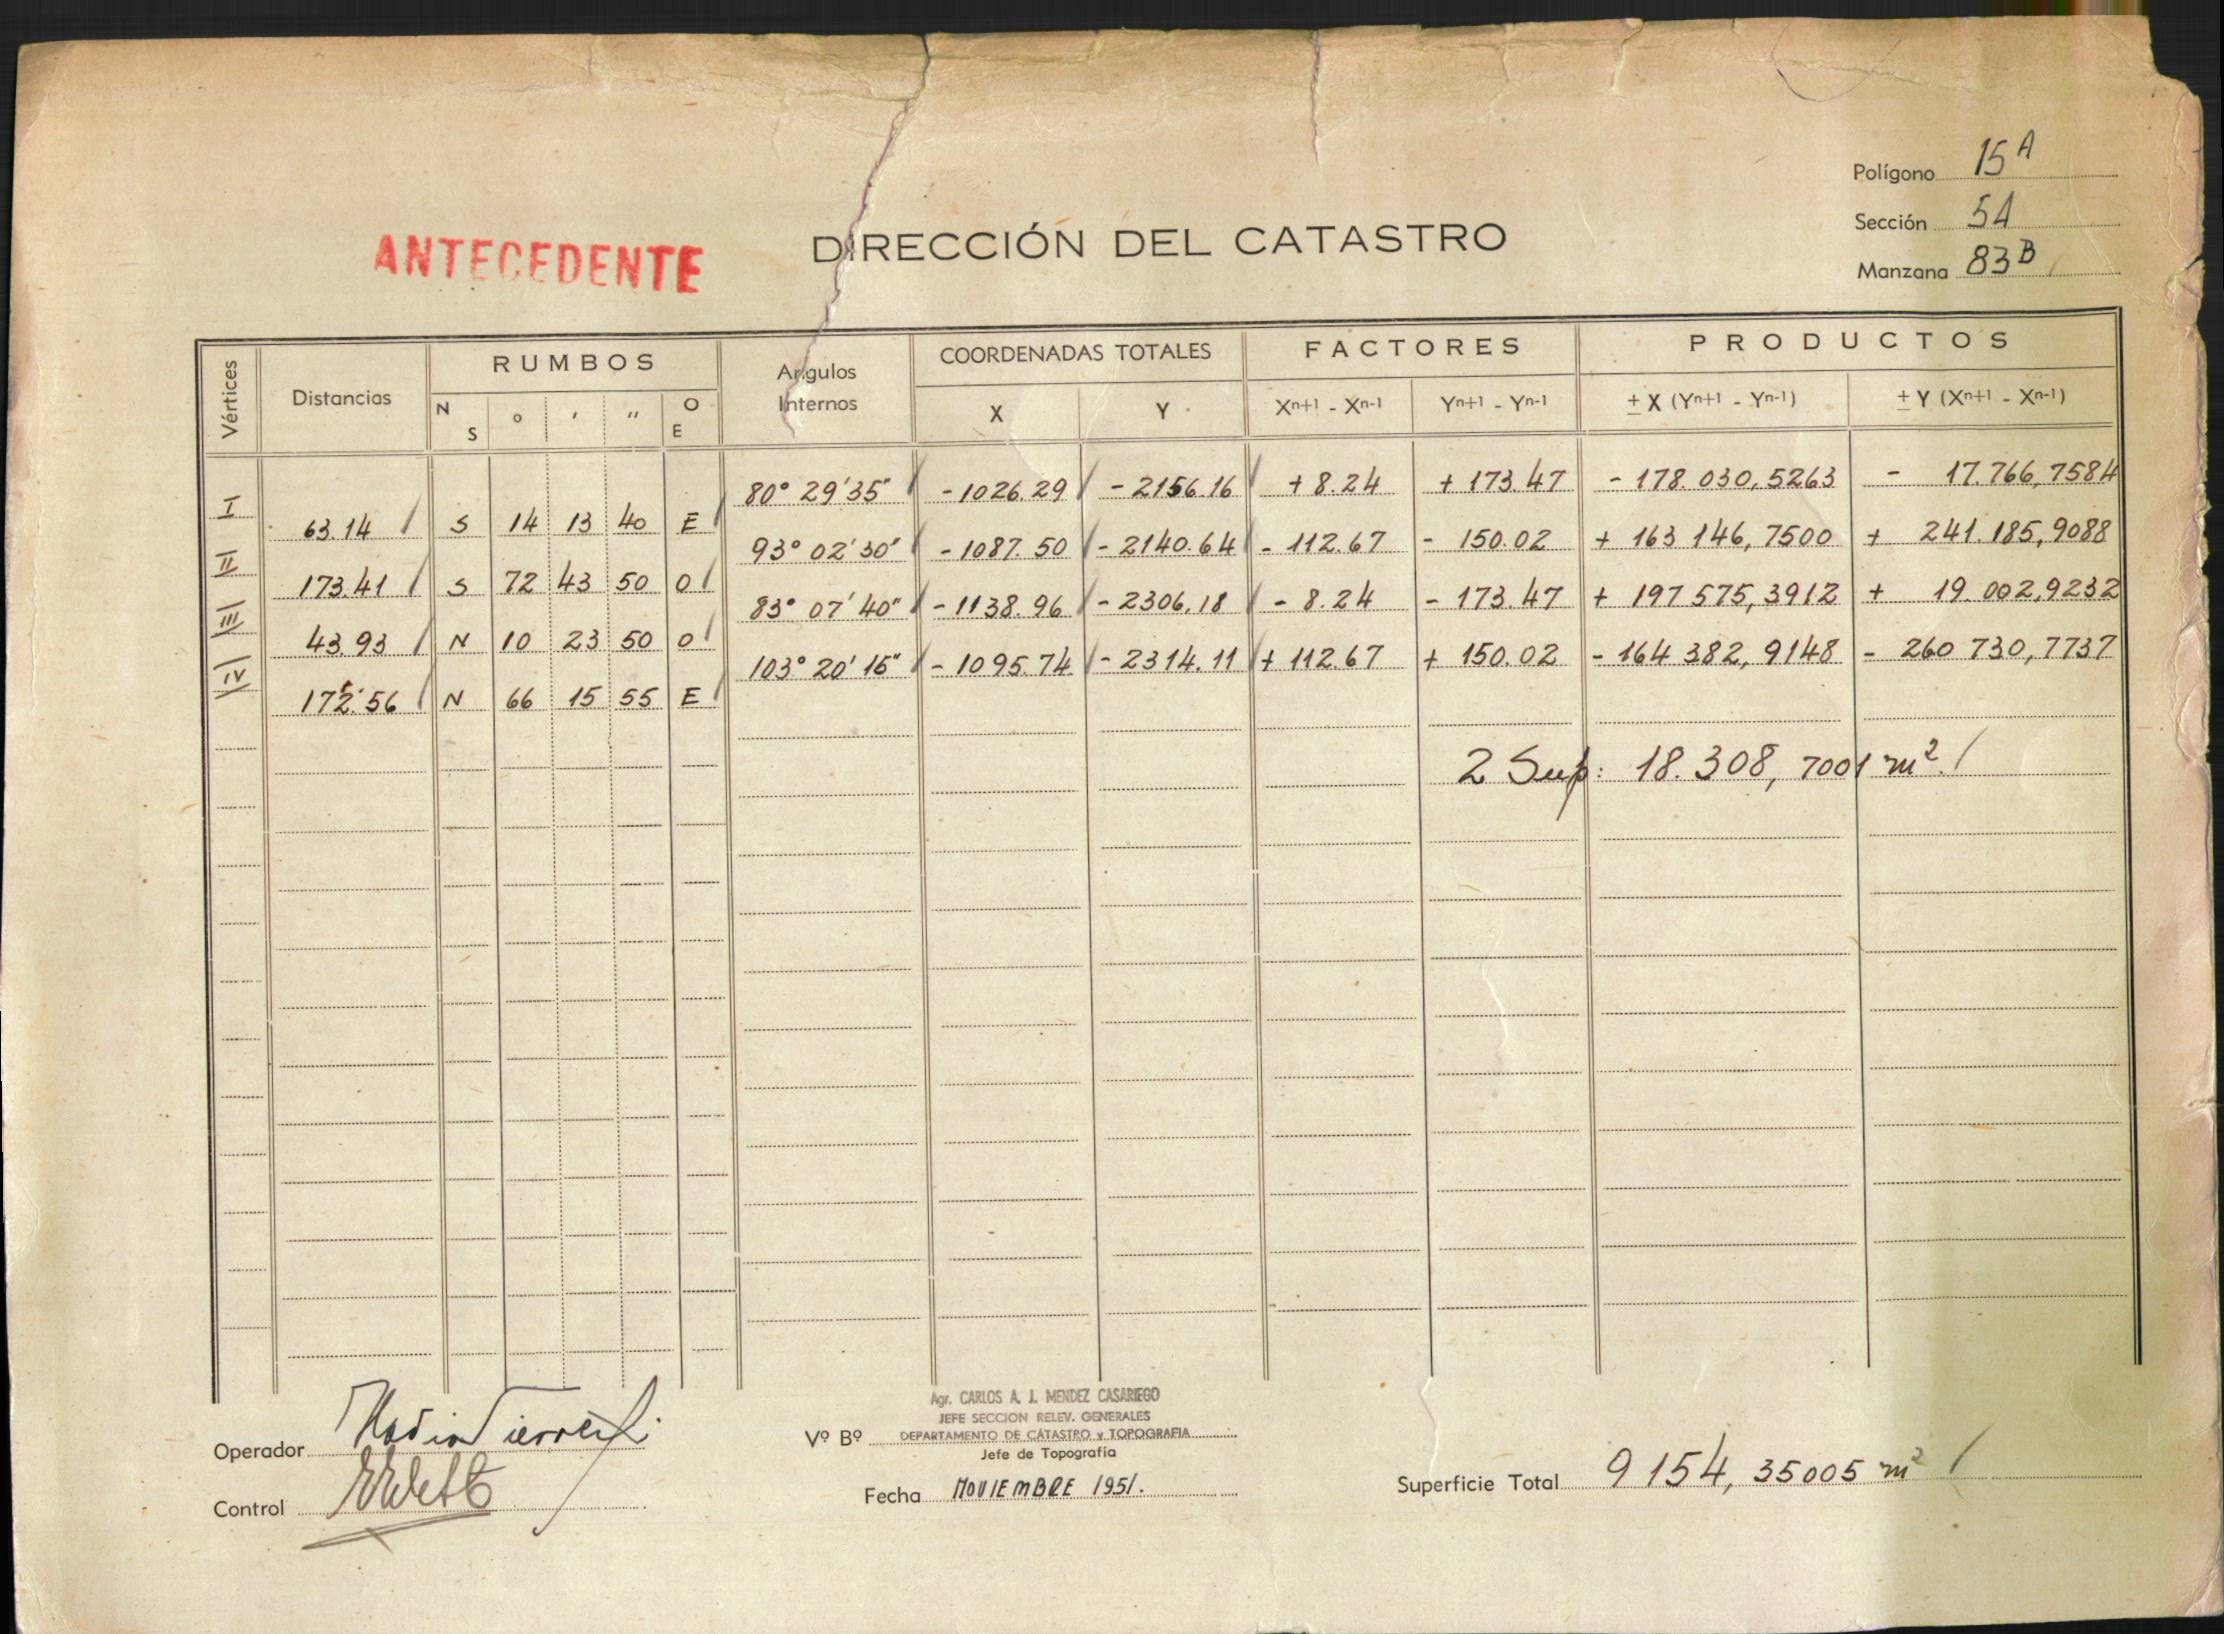 Polígono 15 A
Sección 5A
Manzana 83 B
ANTECEDENTE
DIRECCIÓN DEL CATASTRO
Vértices Distancias RUMBOS Angulos Internos COORDENADAS TOTALES FACTORES PRODUCTOS
N S ° ' " O E X Y Xn+1 - Xn-1 Yn+1 - Yn-1 ± X (Yn+1 - Yn-1) ± Y (Xn+1 - Xn-1)
80° 29' 35" - 1026.29 - 2156.16 + 8.24 + 173.47 - 178.030,5263 - 17.766,7584
I 63.14 S 14 13 40 E
93° 02' 30" - 1087.50 - 2140.64 - 112.67 - 150.02 + 163 146,7500 + 241.185,9088
II 173.41 S 72 43 50 O
83° 07' 40" - 1138.96 - 2306.18 - 8.24 - 173.47 + 197 575,3912 + 19.002,9232
III 43.93 N 10 23 50 O
103° 20' 15" - 1095.74 - 2314.11 + 112.67 + 150.02 - 164 382,9148 - 260 730,7737
IV 172.56 N 66 15 55 E
2 Sup: 18.308,7001 m²
Agr. CARLOS A. J. MENDEZ CASARIEGO
JEFE SECCION RELEV. GENERALES
DEPARTAMENTO DE CATASTRO y TOPOGRAFIA
Operador
Vº Bº
Jefe de Topografía
Control
Fecha NOVIEMBRE 1951.
Superficie Total 9154,35005 m²